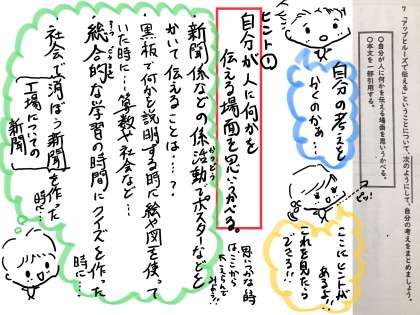 7 「アップとルーズで伝える」ということについて、次のようにして、自分の考えをまとめましょう。
○自分が人に何かを伝える場面を思いうかべる。
○本文を一部引用する。
自分の考えを
かくのかぁ…
ピッ!
ここにヒントが
あるよ!
これを見たら
できそう!!
ヒント①
自分が人に何かを
伝える場面を思いうかべる。
思いつかない時
は、ここから
えらんで
みよう!!
新聞係などの係活動でポスターなどを
かいて伝えることは…?
黒板で何かを説明する時に絵や図を使って
いた時に…算数や社会など…
総合的な学習の時間にクイズを作った
時に…
社会で消ぼう新聞を作った
時…
工場についての
新聞
時…